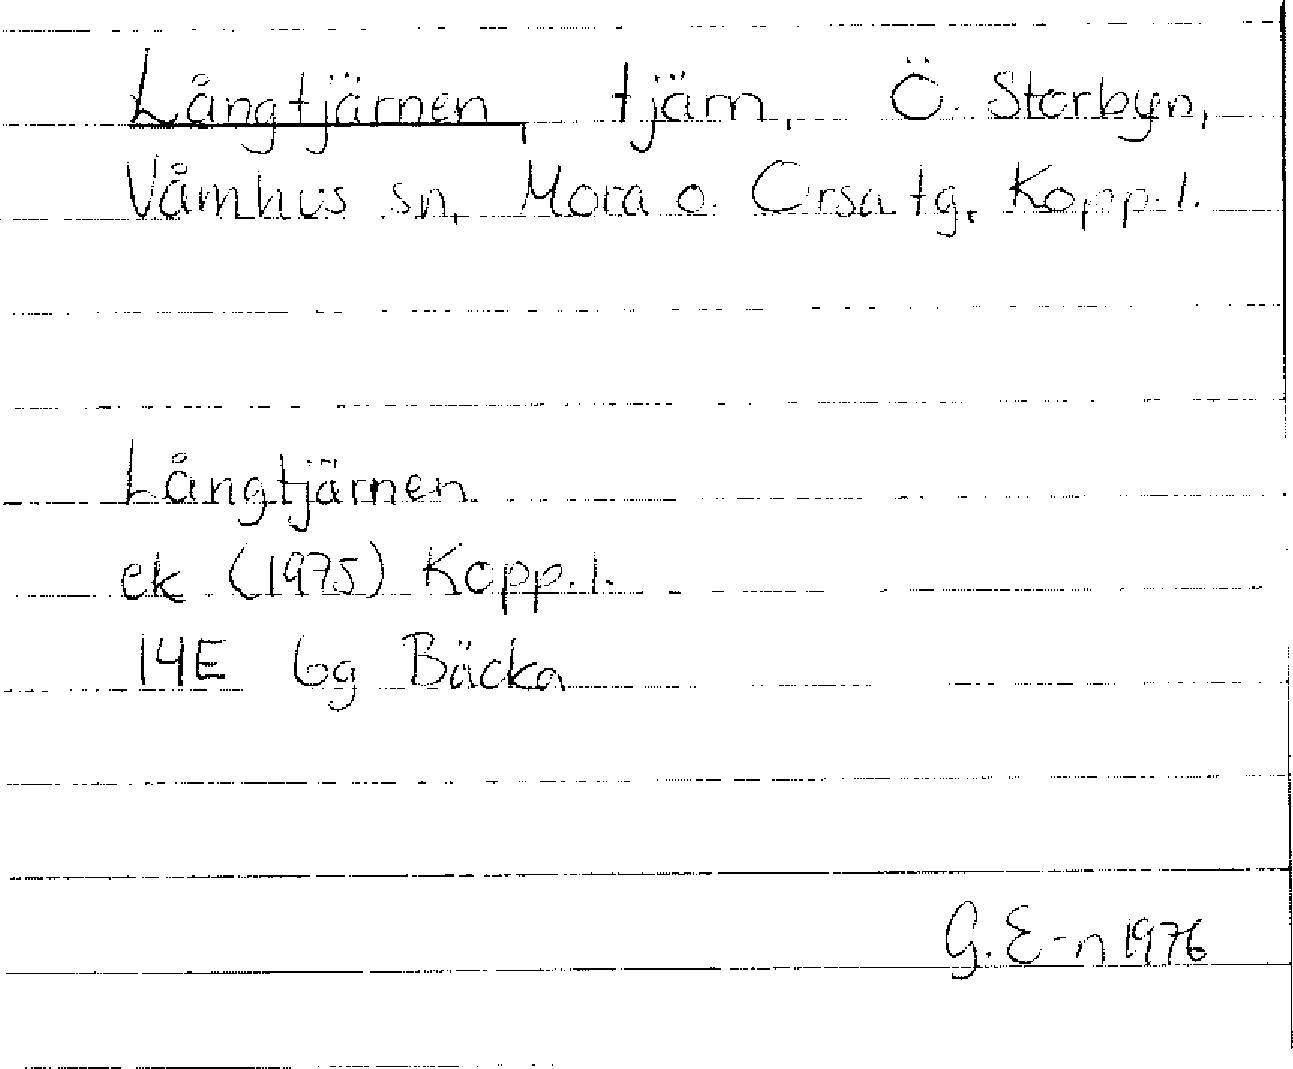 Långtjärnen, tjärn, Ö. Storbyn,
Våmhus sn, Mora o. Orsa tg, Kopp. l.
Långtjärnen
ek (1975) Kopp. l.
14E 6g Bäcka
G. E-n 1976